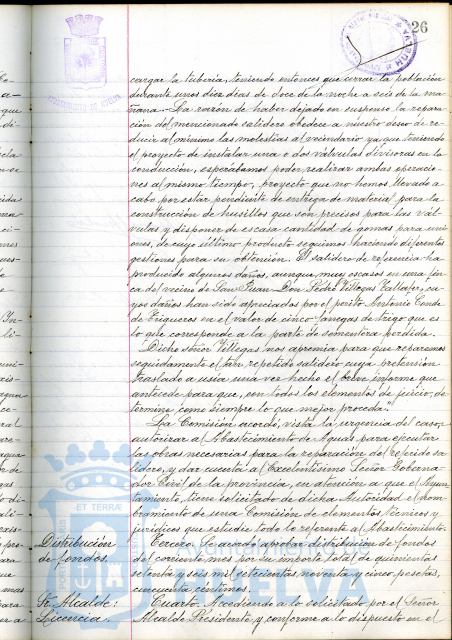 26
cargar la tubería, teniendo entonces que cerrar la población
durante unos diez días de doce de la noche a seis de la ma-
ñana. La razón de haber dejado en suspenso la repara-
ción del mencionado salidero obedece a nuestro deseo de re-
ducir al mínimo las molestias al vecindario ya que teniendo
el proyecto de instalar una o dos válvulas divisoras en la
conducción, esperábamos poder realizar ambas operacio-
nes al mismo tiempo, proyecto que no hemos llevado a
cabo por estar pendiente de entrega de material para la
construcción de husillos que son precisos para las vál-
vulas y disponer de escasa cantidad de gomas para unio-
nes, de cuyo último producto seguimos haciendo diferentes
gestiones para su obtención. El salidero de referencia ha
producido algunos daños, aunque muy escasos en una fin-
ca del vecino de San Juan Don Pedro Villegas cu-
yos daños han sido apreciados por el perito Antonio Conde
de Trigueros en el valor de cinco fanegas de trigo que es
lo que corresponde a la parte de sementera perdida.
Dicho señor Villegas nos apremia para que reparemos
seguidamente el tan repetido salidero cuya pretensión
traslado a usía una vez hecho el breve informe que
antecede para que, con todos los elementos de juicio, de-
termine como siempre lo que mejor proceda".
La Comisión acordó, vista la urgencia del caso,
autorizar al Abastecimiento de Aguas para ejecutar
las obras necesarias para la reparación del referido sa-
lidero, y dar cuenta al Excelentísimo Señor Goberna-
dor Civil de la provincia, en atención a que el Ayun-
tamiento, tiene solicitado de dicha Autoridad el nom-
bramiento de una Comisión de elementos técnicos y
jurídicos que estudie todo lo referente al Abastecimiento.
Distribución
de fondos.
Tercero. Se acordó aprobar distribución de fondos
del corriente mes por su importe total de quinientas
setenta y seis mil setecientas noventa y cinco pesetas,
cincuenta céntimos.
Sr. Alcalde:
Licencia.
Cuarto. Accediendo a lo solicitado por el Señor
Alcalde Presidente y conforme a lo dispuesto en el
ET TERRÆ
Ayuntamiento de
HUELVA